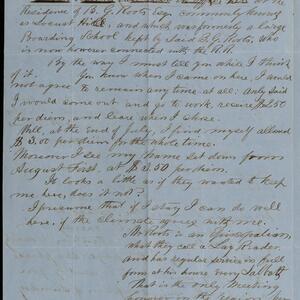 Residence of B. G. Roots Esq. commonly known
as Locust Hill, and which was formerly a large
Boarding School kept by said B. G. Roots, who
is now however connected with the R.R.
By the way I must tell you while I think
of it. You know when I came on here, I would
not agree to remain any time at all. Only said
I would come out and go to work, receive $2.50
per diem, and leave when I chose.
Well, at the end of July, I find myself allowed
$3.00 per diem for the whole time.
Moreover I see my name set down from
August First, at $3.50 per diem.
It looks a little as if they wanted to keep
me here, does it not?
I presume that if I stay I can do well
here, if the climate agrees with me.
Mr Roots is an Episcopalian,
what they call a Lay Reader,
and has regular service in full
form at his house every Sabbath
That is the only Meeting